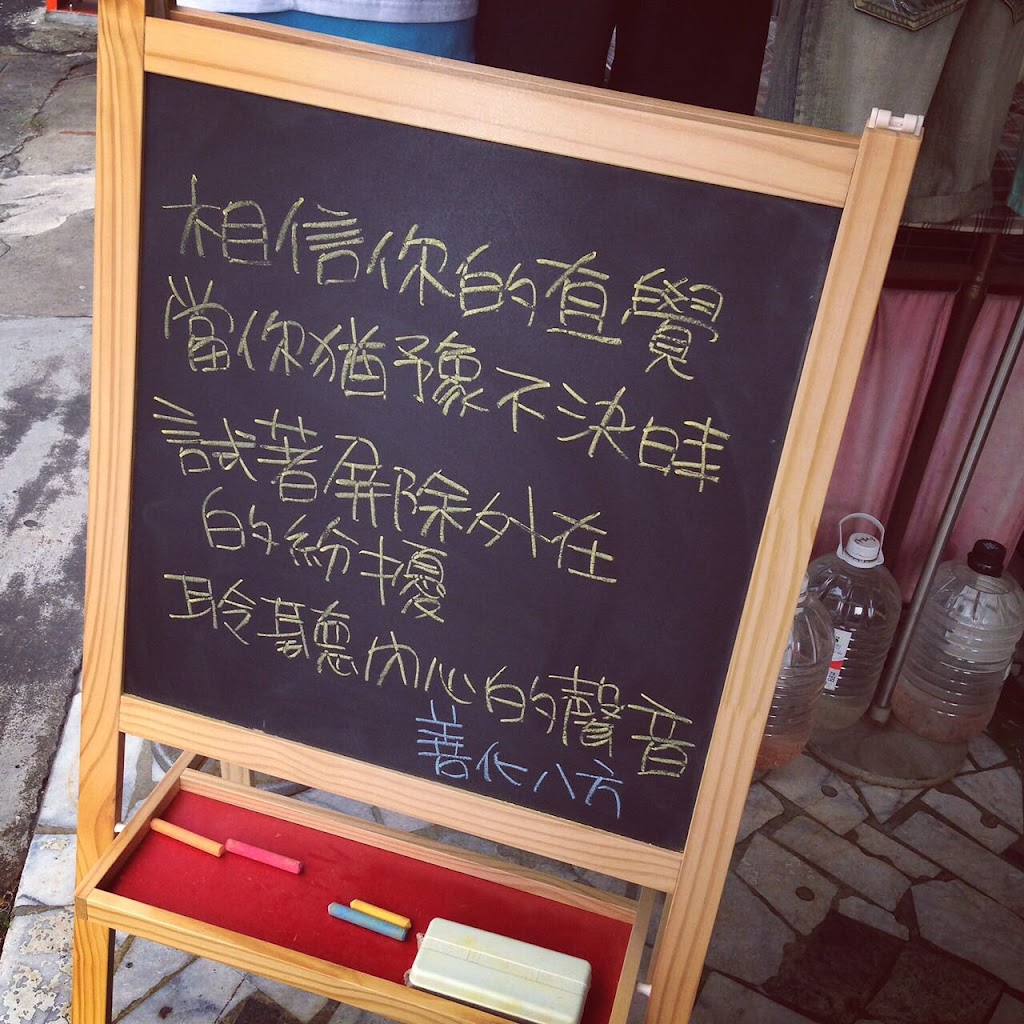 相信你的直覺
當你猶豫不決時
試著屏除外在
的紛擾
聆聽內心的聲音
善化八方